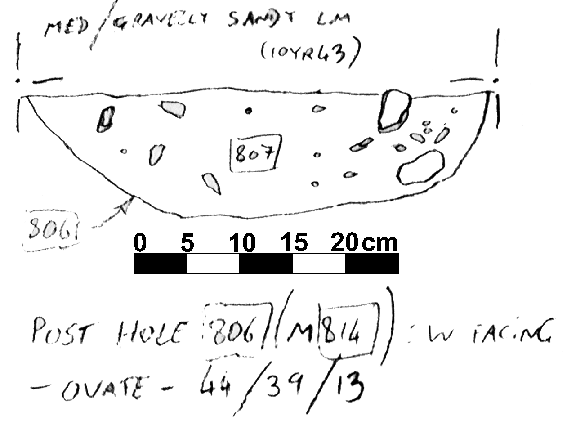 MED/GRAVELLY SANDY LM
(10YR43)
807
806
0 5 10 15 20cm
POST HOLE 806 (M 814) : W FACING
- OVATE - 44/39/13